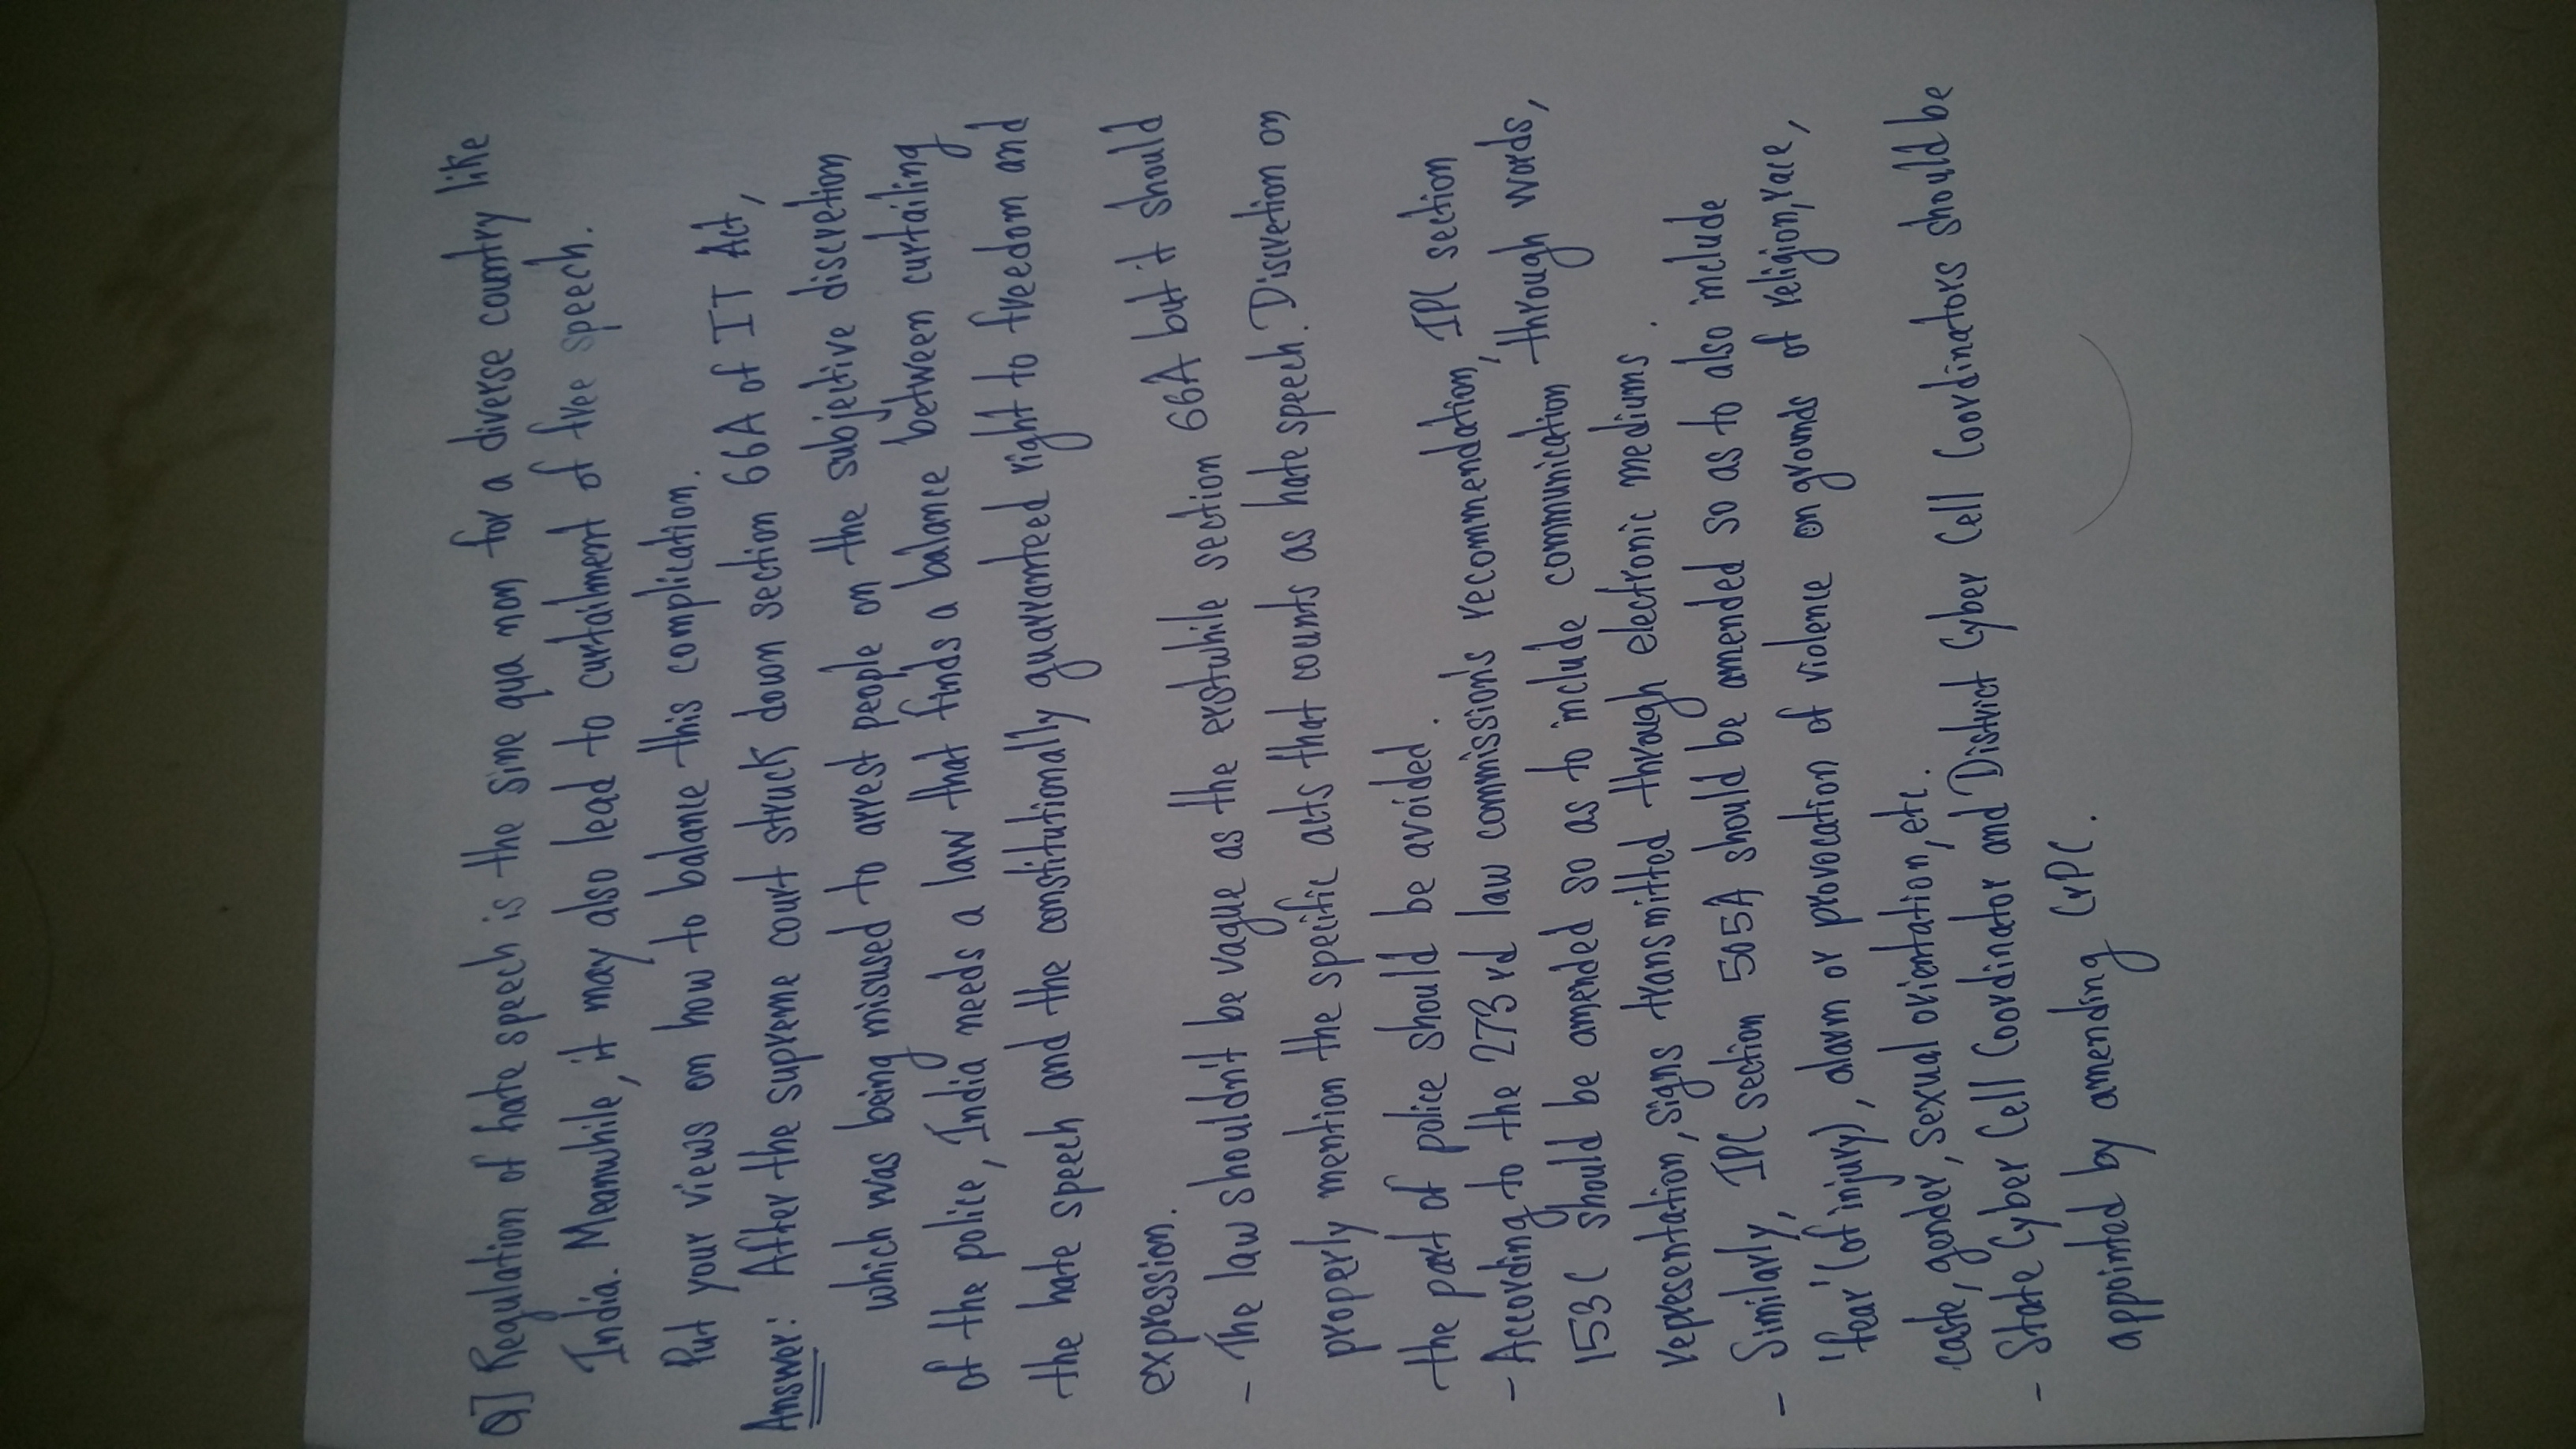 Q] Regulation of hate speech is the sine qua non for a diverse country like
India. Meanwhile, it may also lead to curtailment of free speech.
Put your views on how to balance this complication.
Answer: After the supreme court struck down section 66A of IT Act,
which was being misused to arrest people on the subjective discretion
of the police, India needs a law that finds a balance between curtailing
the hate speech and the constitutionally guaranteed right to freedom and
expression.
- The law shouldn't be vague as the erstwhile section 66A but it should
properly mention the specific acts that counts as hate speech. Discretion on
the part of police should be avoided.
- According to the 273rd law commission's recommendation, IPC section
153C should be amended so as to include communication through words,
representation, signs transmitted through electronic mediums.
- Similarly, IPC section 505A should be amended so as to also include
'fear' (of injury), alarm or provocation of violence on grounds of religion, race,
caste, gender, sexual orientation, etc.
- State Cyber Cell Coordinator and District Cyber Cell Coordinators should be
appointed by amending CrPC.